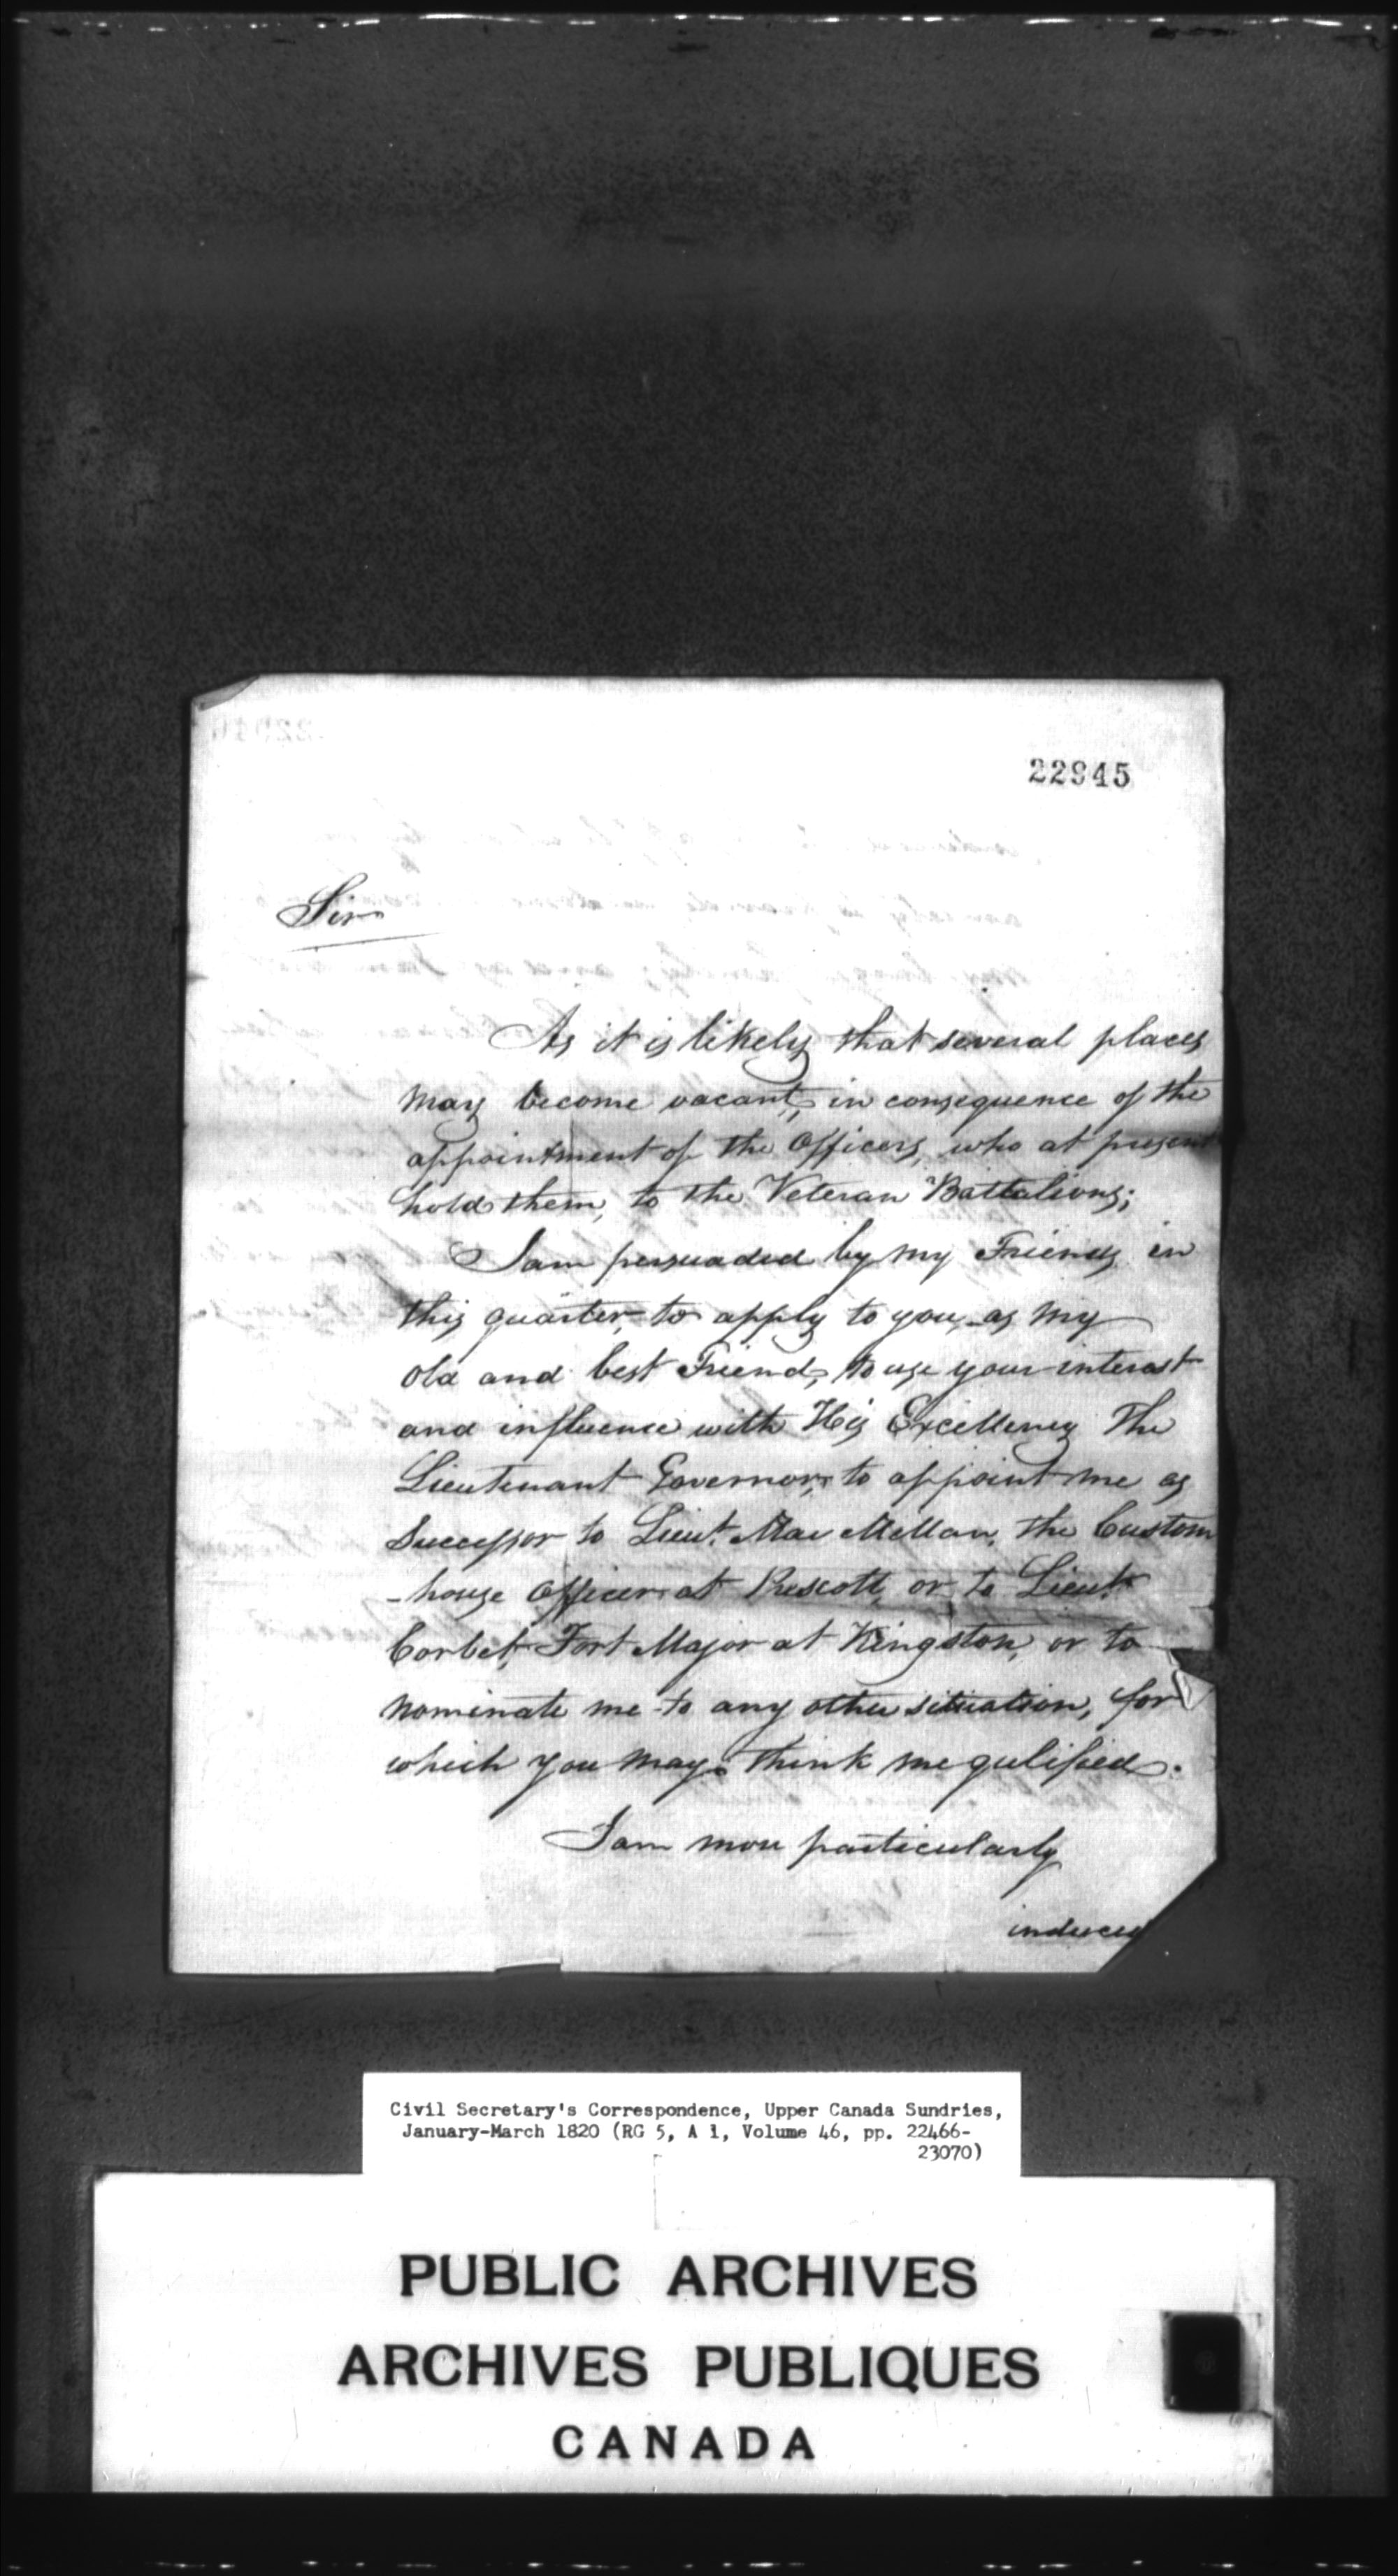 22945
Sir
As it is likely that several places
may become vacant, in consequence of the
appointment of the Officers, who at present
hold them, to the Veteran Battalions;
I am persuaded by my Friends in
this quarter, to apply to you, as my
old and best Friend, to use your interest
and influence with His Excellency The
Lieutenant Governor, to appoint me as
Successor to Lieut. Mac Mellan, the Custom
-house Officer at Prescott, or to Lieut.
Corbet, Fort Major at Kingston, or to
nominate me to any other situation, for
which you may think me qulified.
I am more particularly
induced
Civil Secretary's Correspondence, Upper Canada Sundries,
January-March 1820 (RG 5, A 1, Volume 46, pp. 22466-
23070)
PUBLIC ARCHIVES
ARCHIVES PUBLIQUES
CANADA